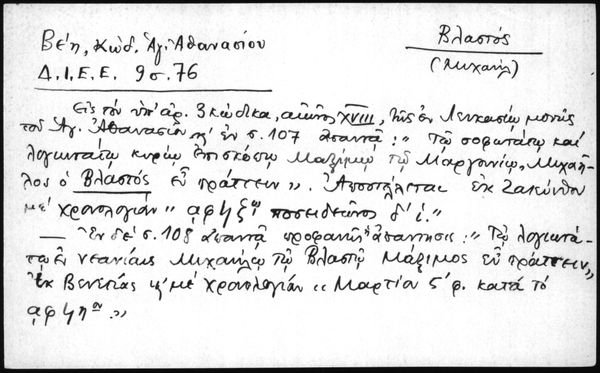 Βέη, Κώδ. Ἁγ. Ἀθανασίου
Δ.Ι.Ε.Ε. 9 σ. 76
Βλαστός
(Μιχαήλ)
Εἰς τὸν ὑπ' ἀρ. 3 κώδικα, αἰῶνος XVIII, τῆς ἐν Λευκασίῳ μονῆς
τοῦ Ἁγ. Ἀθανασίου κ' ἐν σ. 107 ἀπαντᾷ: "Τῷ σοφωτάτῳ καὶ
λογιωτάτῳ κυρίῳ ἐπισκόπῳ Μαξίμῳ τῷ Μαργουνίῳ, Μιχαῆ-
λος ὁ Βλαστὸς εὖ πράττειν". Ἀποστέλλεται ἐκ Ζακύνθου
μὲ χρονολογίαν "αφϟξῳ ποσειδεῶνος δ' ἱ."
— Ἐν δὲ σ. 108 ἀπαντᾷ προφανὴς ἀπάντησις: "Τῷ λογιωτά-
τῳ ἐν νεανίαις Μιχαήλῳ τῷ Βλαστῷ Μάξιμος εὖ πράττειν"
ἐκ Βενετίας κ' μὲ χρονολογίαν "Μαρτίου ϛ' φ. κατὰ τὸ
αφϟηον."